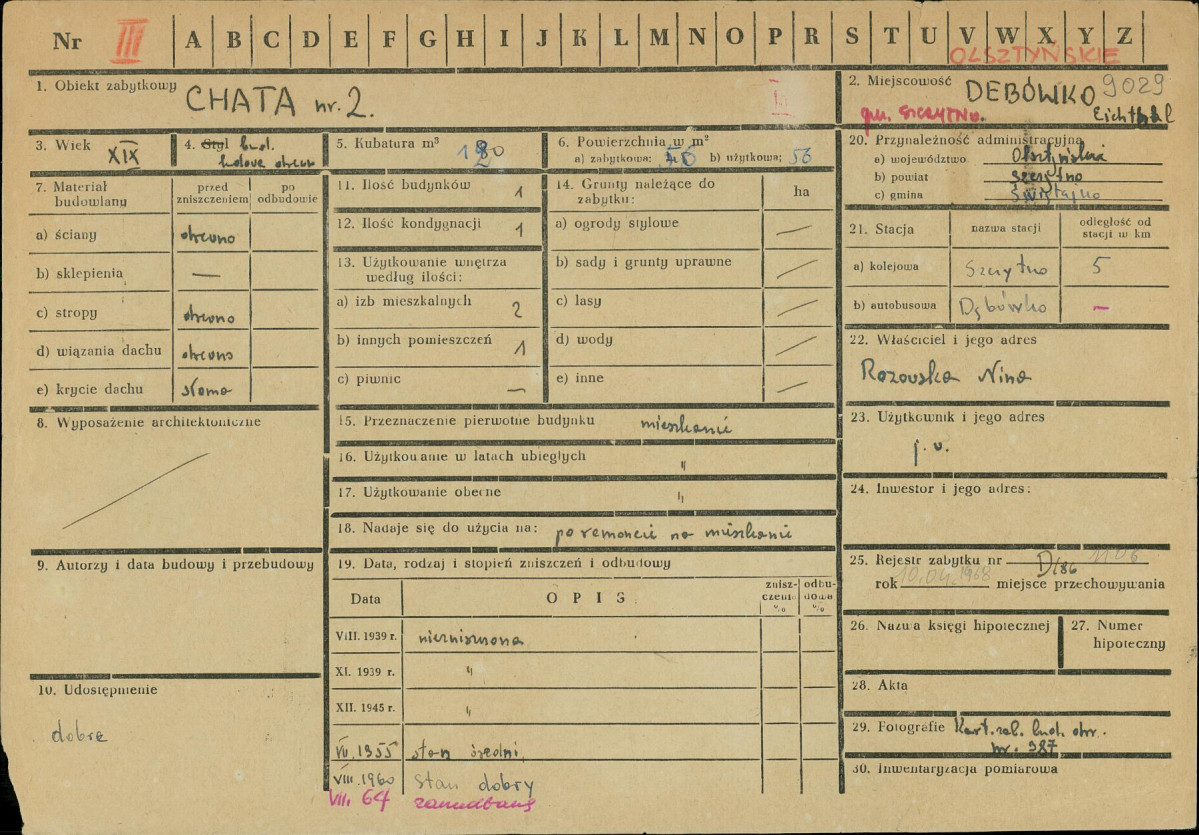 Nr III A B C D E F G H I J K L M N O P R S T U V W X Y Z
OLSZTYŃSKIE
1. Obiekt zabytkowy CHATA nr. 2.
2. Miejscowość DĘBÓWKO 9029
gm. SZCZYTNO.
3. Wiek XIX
4. Styl bud.
ludowe drewn
5. Kubatura m³ 180
6. Powierzchnia w m²
a) zabytkowa: 56 b) użytkowa: 56
7. Materiał budowlany
przed zniszczeniem
po odbudowie
a) ściany drewno
b) sklepienia —
c) stropy drewno
d) wiązania dachu drewno
e) krycie dachu słoma
8. Wyposażenie architektoniczne
9. Autorzy i data budowy i przebudowy
10. Udostępnienie
dobre
11. Ilość budynków 1
12. Ilość kondygnacji 1
13. Użytkowanie wnętrza
według ilości:
a) izb mieszkalnych 2
b) innych pomieszczeń 1
c) piwnic —
14. Grunty należące do
zabytku:
ha
a) ogrody stylowe —
b) sady i grunty uprawne —
c) lasy —
d) wody —
e) inne —
15. Przeznaczenie pierwotne budynku mieszkanie
16. Użytkowanie w latach ubiegłych "
17. Użytkowanie obecne "
18. Nadaje się do użycia na: po remoncie na mieszkanie
19. Data, rodzaj i stopień zniszczeń i odbudowy
Data OPIS
zniszczenie %
odbudowa %
VIII. 1939 r. niezniszczona
XI. 1939 r. "
XII. 1945 r. "
VII. 1955 stan średni
VIII. 1960 stan dobry
VII. 64 zaniedbany
20. Przynależność administracyjna
a) województwo Olsztyński
b) powiat Szczytno
c) gmina Świętajno
21. Stacja
nazwa stacji
odległość od
stacji w km
a) kolejowa Szczytno 5
b) autobusowa Dębówko —
22. Właściciel i jego adres
Rozowska Nina
23. Użytkownik i jego adres
j. w.
24. Inwestor i jego adres:
25. Rejestr zabytku nr D/86 1106
rok 10.04.1968 miejsce przechowywania
26. Nazwa księgi hipotecznej
27. Numer
hipoteczny
28. Akta
29. Fotografie Kart. zab. bud. drw.
nr. 387
30. Inwentaryzacja pomiarowa